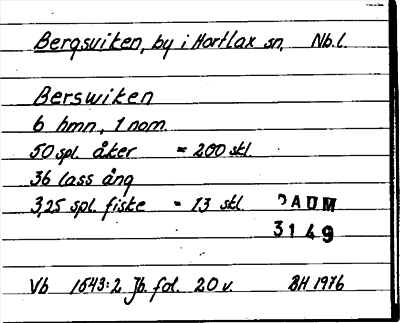 Bergsviken, by i Hortlax sn, Nb.l.
Berswiken
6 hmn, 1 nom.
50 spl. åker = 200 skl.
36 lass äng
3,25 spl. fiske = 13 skl.
DAUM
3149
Vb 1543:2 Jb. fol. 20 v. BH 1976